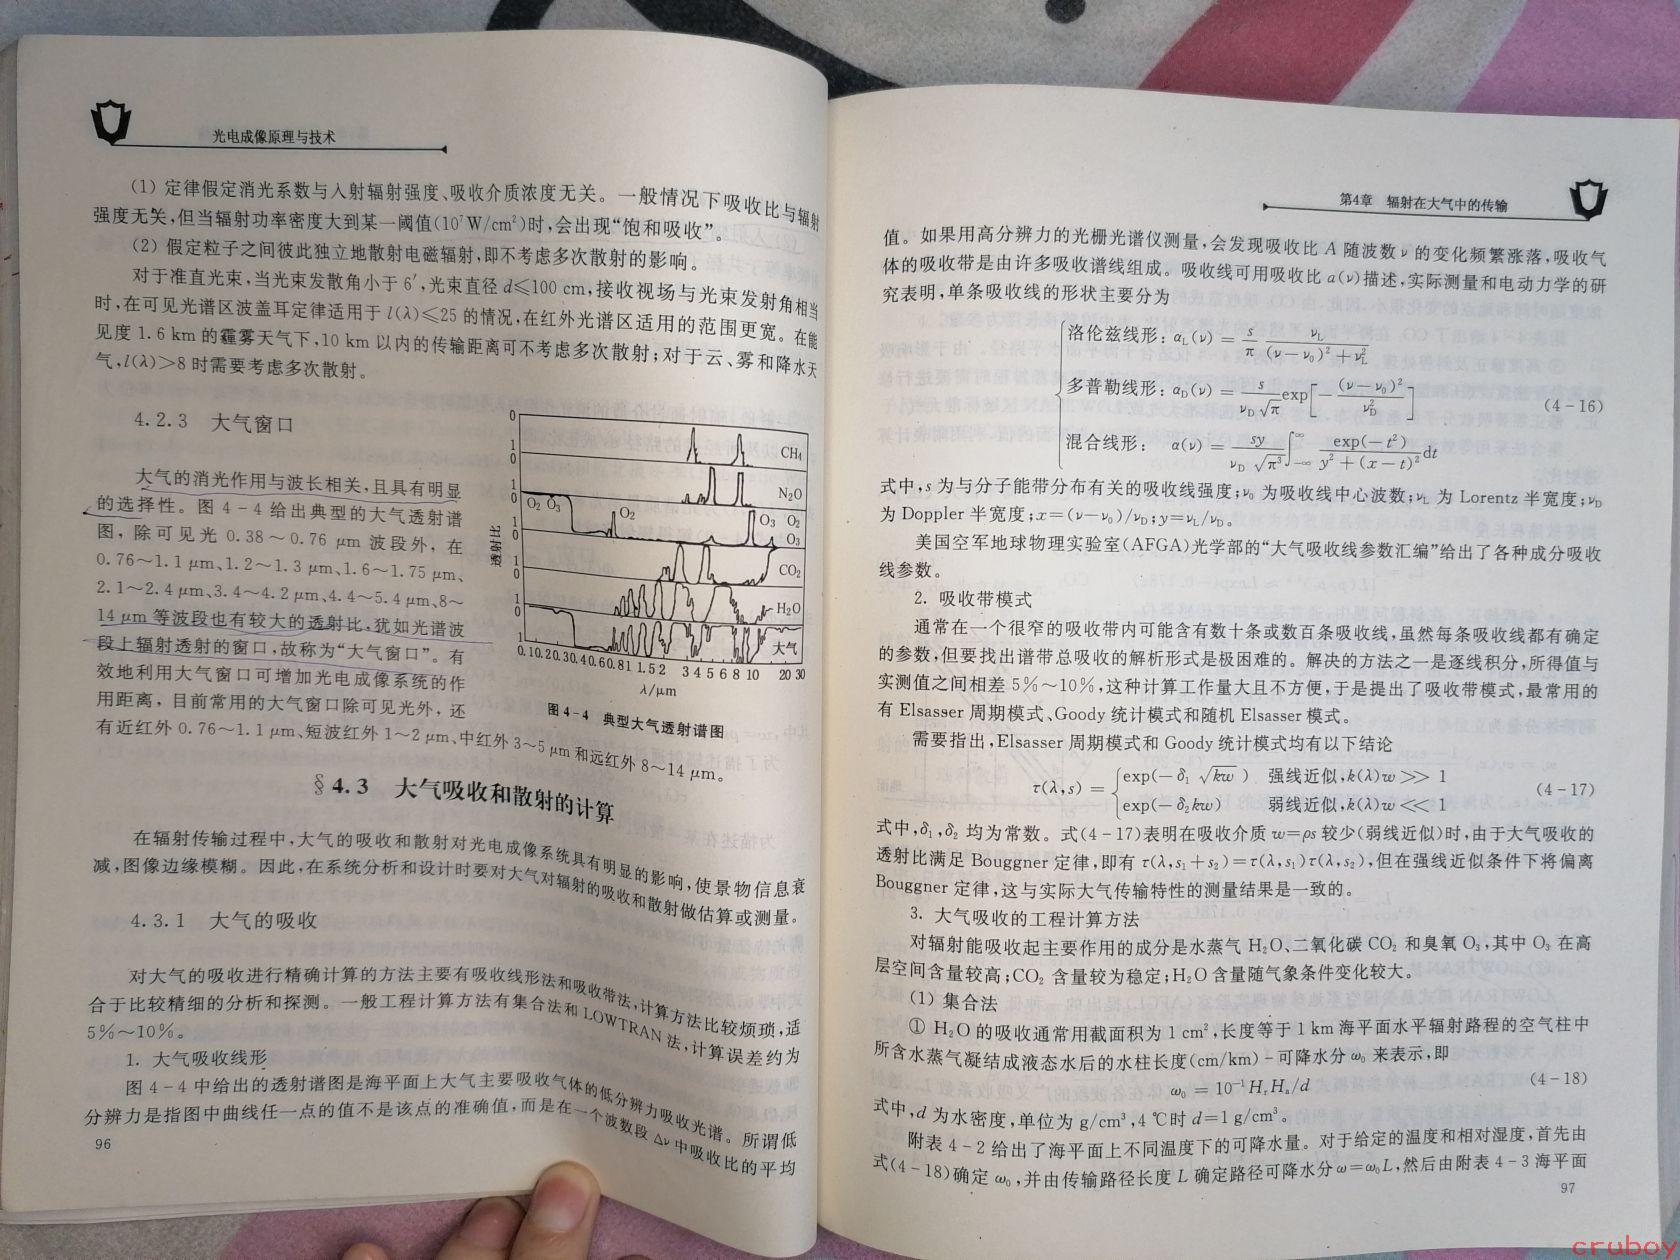 光电成像原理与技术
(1) 定律假定消光系数与入射辐射强度、吸收介质浓度无关。一般情况下吸收比与辐射
强度无关,但当辐射功率密度大到某一阈值(10⁷W/cm²)时,会出现“饱和吸收”。
(2) 假定粒子之间彼此独立地散射电磁辐射,即不考虑多次散射的影响。
对于准直光束,当光束发散角小于6′,光束直径 d≤100 cm,接收视场与光束发射角相当
时,在可见光谱区波盖耳定律适用于 l(λ)≤25 的情况,在红外光谱区适用的范围更宽。在能
见度 1.6 km 的霾雾天气下,10 km 以内的传输距离可不考虑多次散射;对于云、雾和降水天
气,l(λ)>8 时需要考虑多次散射。
4.2.3 大气窗口
大气的消光作用与波长相关,且具有明显
的选择性。图 4-4 给出典型的大气透射谱
图,除可见光 0.38～0.76 μm 波段外,在
0.76～1.1 μm、1.2～1.3 μm、1.6～1.75 μm、
2.1～2.4 μm、3.4～4.2 μm、4.4～5.4 μm、8～
14 μm 等波段也有较大的透射比,犹如光谱波
段上辐射透射的窗口,故称为“大气窗口”。有
效地利用大气窗口可增加光电成像系统的作
用距离,目前常用的大气窗口除可见光外,还
有近红外 0.76～1.1 μm、短波红外 1～2 μm、中红外 3～5 μm 和远红外 8～14 μm。
透射比
0
1
0
1
0
1
0
1
0
1
0
1
CH₄
N₂O
O₂ O₃ O₂ O₃ O₂
O₃
CO₂
H₂O
大气
0.1 0.2 0.3 0.4 0.6 0.8 1 1.5 2 3 4 5 6 8 10 20 30
λ/μm
图 4-4 典型大气透射谱图
§4.3 大气吸收和散射的计算
在辐射传输过程中,大气的吸收和散射对光电成像系统具有明显的影响,使景物信息衰
减,图像边缘模糊。因此,在系统分析和设计时要对大气对辐射的吸收和散射做估算或测量。
4.3.1 大气的吸收
对大气的吸收进行精确计算的方法主要有吸收线形法和吸收带法,计算方法比较烦琐,适
合于比较精细的分析和探测。一般工程计算方法有集合法和 LOWTRAN 法,计算误差约为
5%～10%。
1. 大气吸收线形
图 4-4 中给出的透射谱图是海平面上大气主要吸收气体的低分辨力吸收光谱。所谓低
分辨力是指图中曲线任一点的值不是该点的准确值,而是在一个波数段 Δν 中吸收比的平均
96
第4章 辐射在大气中的传输
值。如果用高分辨力的光栅光谱仪测量,会发现吸收比 A 随波数 ν 的变化频繁涨落,吸收气
体的吸收带是由许多吸收谱线组成。吸收线可用吸收比 α(ν)描述,实际测量和电动力学的研
究表明,单条吸收线的形状主要分为
洛伦兹线形: α_L(ν) = s/π · ν_L/((ν−ν₀)²+ν_L²)
多普勒线形: α_D(ν) = s/(ν_D√π) exp[−(ν−ν₀)²/ν_D²] (4-16)
混合线形: α(ν) = sy/(ν_D√π³) ∫_{−∞}^{∞} exp(−t²)/(y²+(x−t)²) dt
式中,s 为与分子能带分布有关的吸收线强度;ν₀ 为吸收线中心波数;ν_L 为 Lorentz 半宽度;ν_D
为 Doppler 半宽度;x=(ν−ν₀)/ν_D;y=ν_L/ν_D。
美国空军地球物理实验室(AFGA)光学部的“大气吸收线参数汇编”给出了各种成分吸收
线参数。
2. 吸收带模式
通常在一个很窄的吸收带内可能含有数十条或数百条吸收线,虽然每条吸收线都有确定
的参数,但要找出谱带总吸收的解析形式是极困难的。解决的方法之一是逐线积分,所得值与
实测值之间相差 5%～10%,这种计算工作量大且不方便,于是提出了吸收带模式,最常用的
有 Elsasser 周期模式、Goody 统计模式和随机 Elsasser 模式。
需要指出,Elsasser 周期模式和 Goody 统计模式均有以下结论
τ(λ,s) = { exp(−δ₁√kw) 强线近似,k(λ)w ≫ 1
exp(−δ₂kw) 弱线近似,k(λ)w ≪ 1 (4-17)
式中,δ₁,δ₂ 均为常数。式(4-17)表明在吸收介质 w=ρs 较少(弱线近似)时,由于大气吸收的
透射比满足 Bouggner 定律,即有 τ(λ,s₁+s₂)=τ(λ,s₁)τ(λ,s₂),但在强线近似条件下将偏离
Bouggner 定律,这与实际大气传输特性的测量结果是一致的。
3. 大气吸收的工程计算方法
对辐射能吸收起主要作用的成分是水蒸气 H₂O、二氧化碳 CO₂ 和臭氧 O₃,其中 O₃ 在高
层空间含量较高;CO₂ 含量较为稳定;H₂O 含量随气象条件变化较大。
(1) 集合法
① H₂O 的吸收通常用截面积为 1 cm²,长度等于 1 km 海平面水平辐射路程的空气柱中
所含水蒸气凝结成液态水后的水柱长度(cm/km)-可降水分 ω₀ 来表示,即
ω₀ = 10⁻¹HᵣHₐ/d (4-18)
式中,d 为水密度,单位为 g/cm³,4 ℃时 d=1 g/cm³。
附表 4-2 给出了海平面上不同温度下的可降水量。对于给定的温度和相对湿度,首先由
式(4-18)确定 ω₀,并由传输路径长度 L 确定路径可降水分 ω=ω₀L,然后由附表 4-3 海平面
97
cruboy